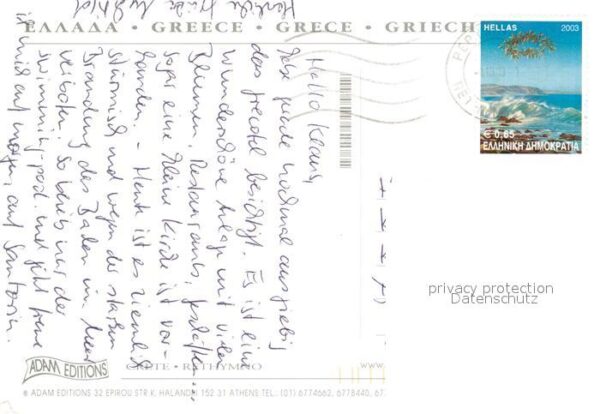 ΕΛΛΑΔΑ • GREECE • GRECE • GRIECH
HELLAS 2003
€ 0,65
ΕΛΛΗΝΙΚΗ ΔΗΜΟΚΡΑΤΙΑ
Hallo
das besichtigt. Es ist eine
wunderschöne Anlage mit vielen
Blumen, Restaurants,
sogar eine kleine Kirche ist vor-
handen. - Heute ist es ziemlich
stürmisch und wegen der starken
Brandung das Baden im Meer
verboten. So bleibt nur der
swimming-pool. und ich freue
mich auf morgen, auf Santorin.
privacy protection
Datenschutz
ADAM EDITIONS
CRETE - RETHYMNO
www.
© ADAM EDITIONS 32 EPIROU STR.K. HALANDRI 152 31 ATHENS TEL.: (01) 6774662, 6778440,